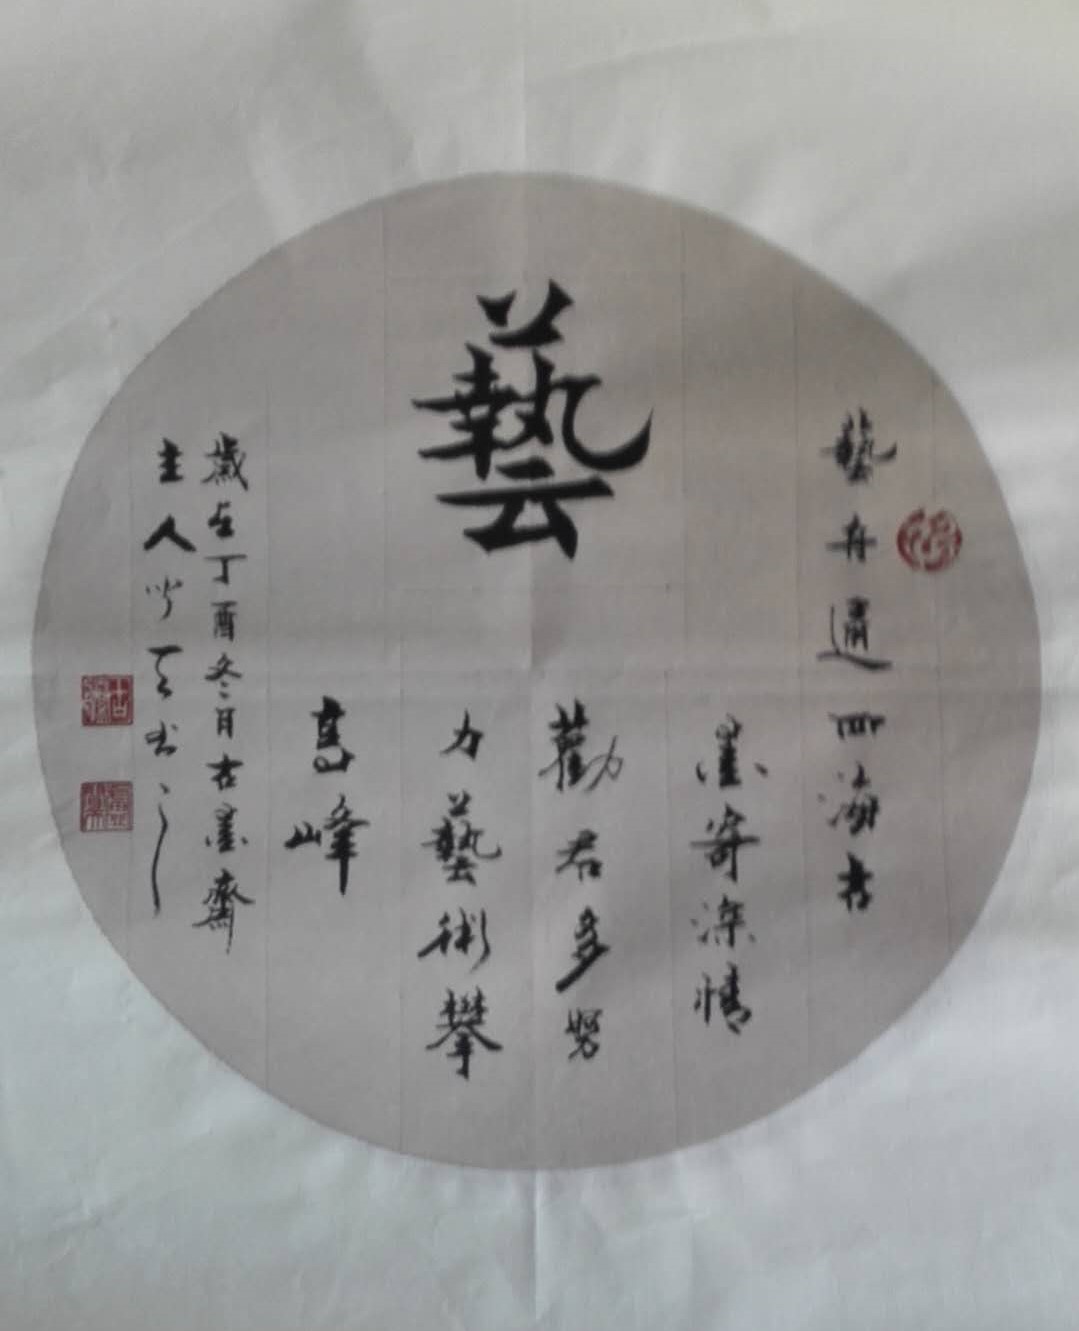 藝
藝舟四海書
墨寄深情
勸君多努
力藝術攀
高峰
歲在丁酉冬月古墨齋
主人書之